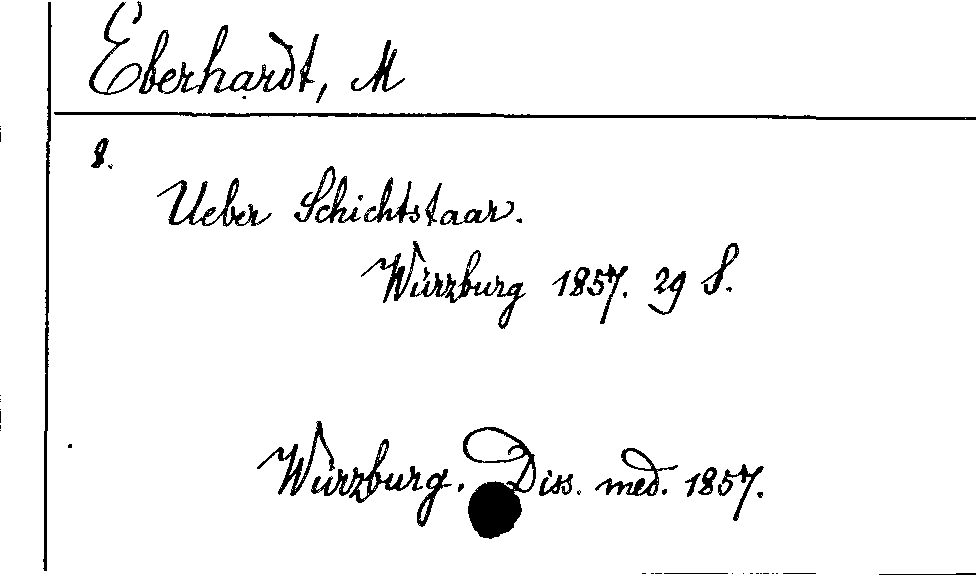 Eberhardt, M
8.
Ueber Schichtstaar.
Würzburg 1857. 29 S.
Würzburg. Diss. med. 1857.